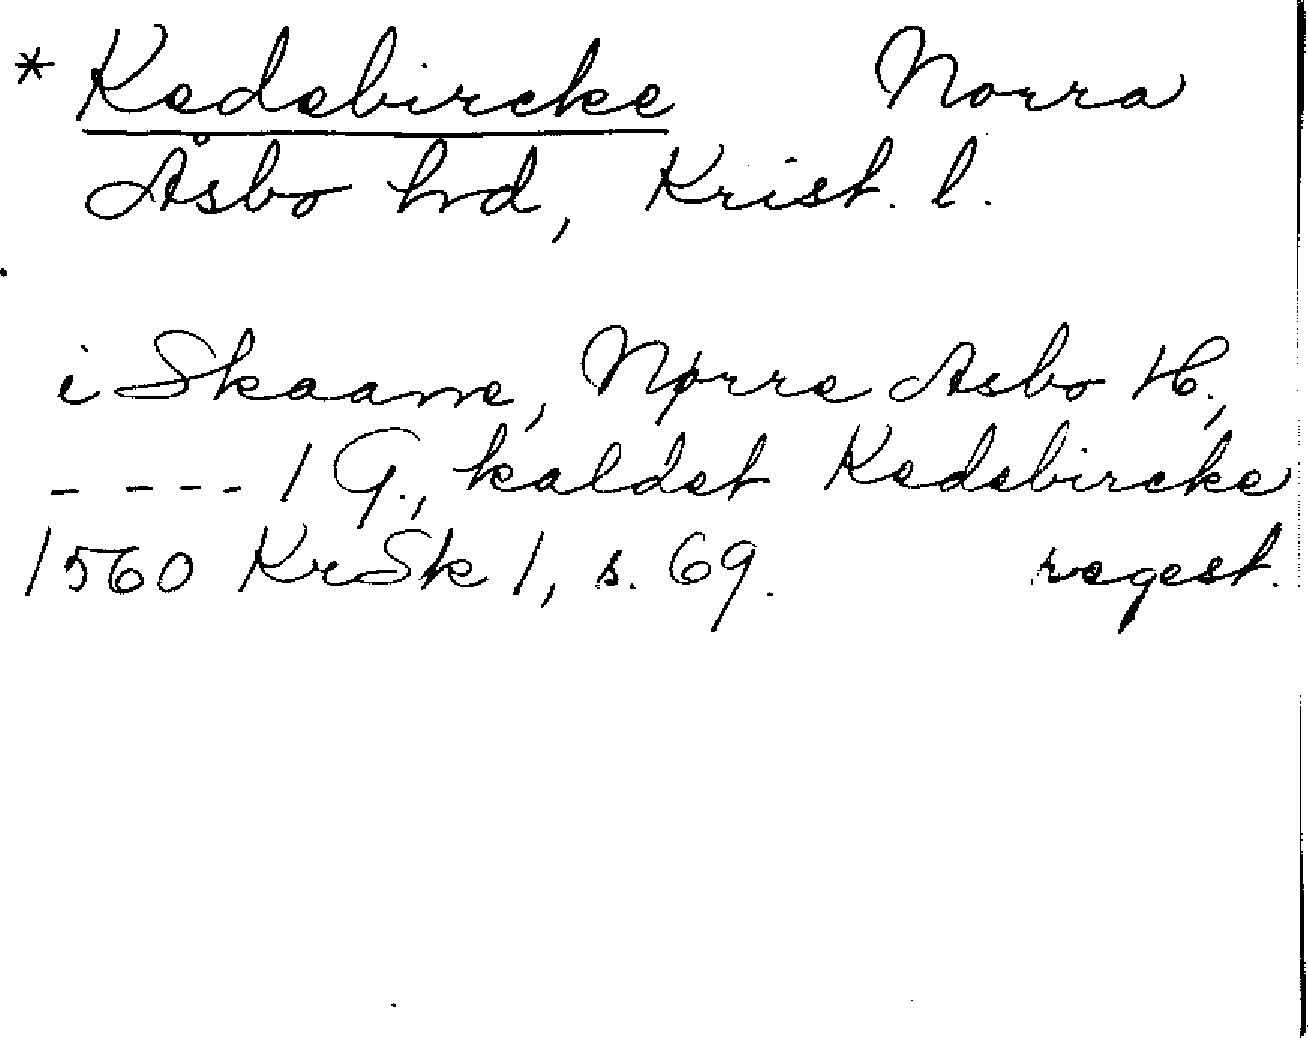 * Kedebircke Norra
Åsbo hrd, Krist. l.
i Skaane, Nørre Asbo H.,
- - - - 1 G., kaldet Kedebircke
1560 KrSk 1, s. 69. regest.